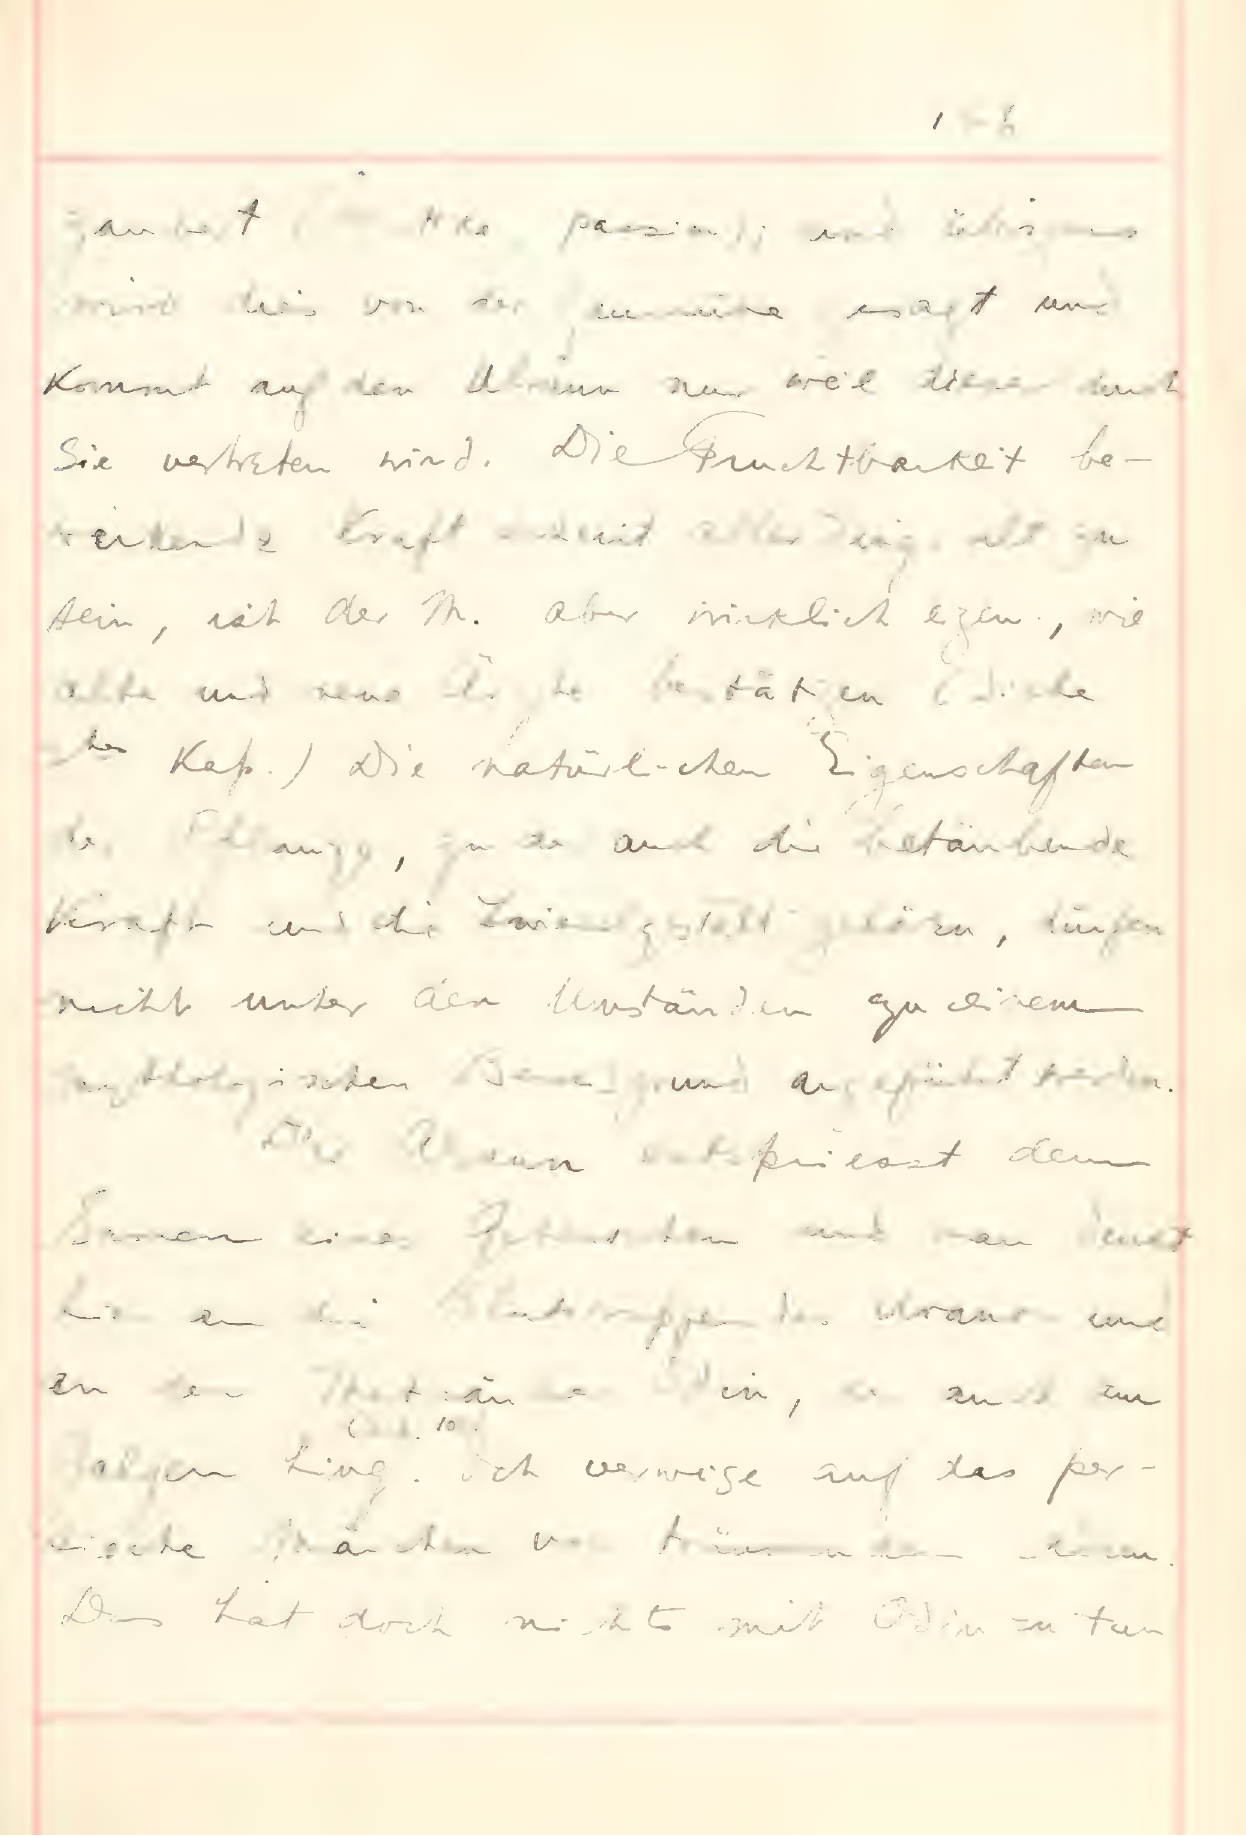 zaubert passim); und übrigens
wird dies von der gesagt und
kommt auf den Alraun nur weil dieser durch
Sie vertreten wird. Die Fruchtbarkeit be-
wirkende Kraft scheint allerdings alt zu
sein, ist der M. aber wirklich eigen, wie
alte und neue Ärzte bestätigen (siehe
Kap.) Die natürlichen Eigenschaften
der Pflanze, zu der auch die betäubende
Kraft und die gehören, dürfen
nicht unter den Umständen zu einem
mythologischen Beweisgrund angeführt werden.
Der Alraun entspriesst dem
Samen eines Gehenkten und man denkt
hier an die Blutstropfen des Uranos und
an den Odin, der auch am
Galgen hing. Ich verweise auf das per-
sische Märchen von träumenden
Das hat doch nichts mit Odin zu tun